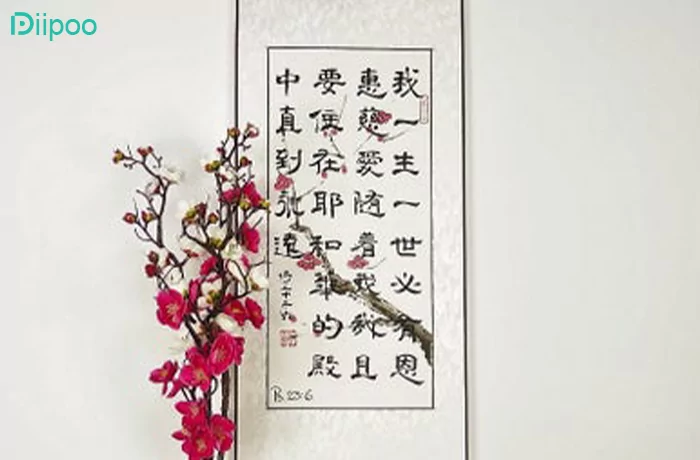 Diipoo
我一生一世必有恩
惠慈愛随着我我且
要住在耶和華的殿
中直到永遠
Ps. 23:6